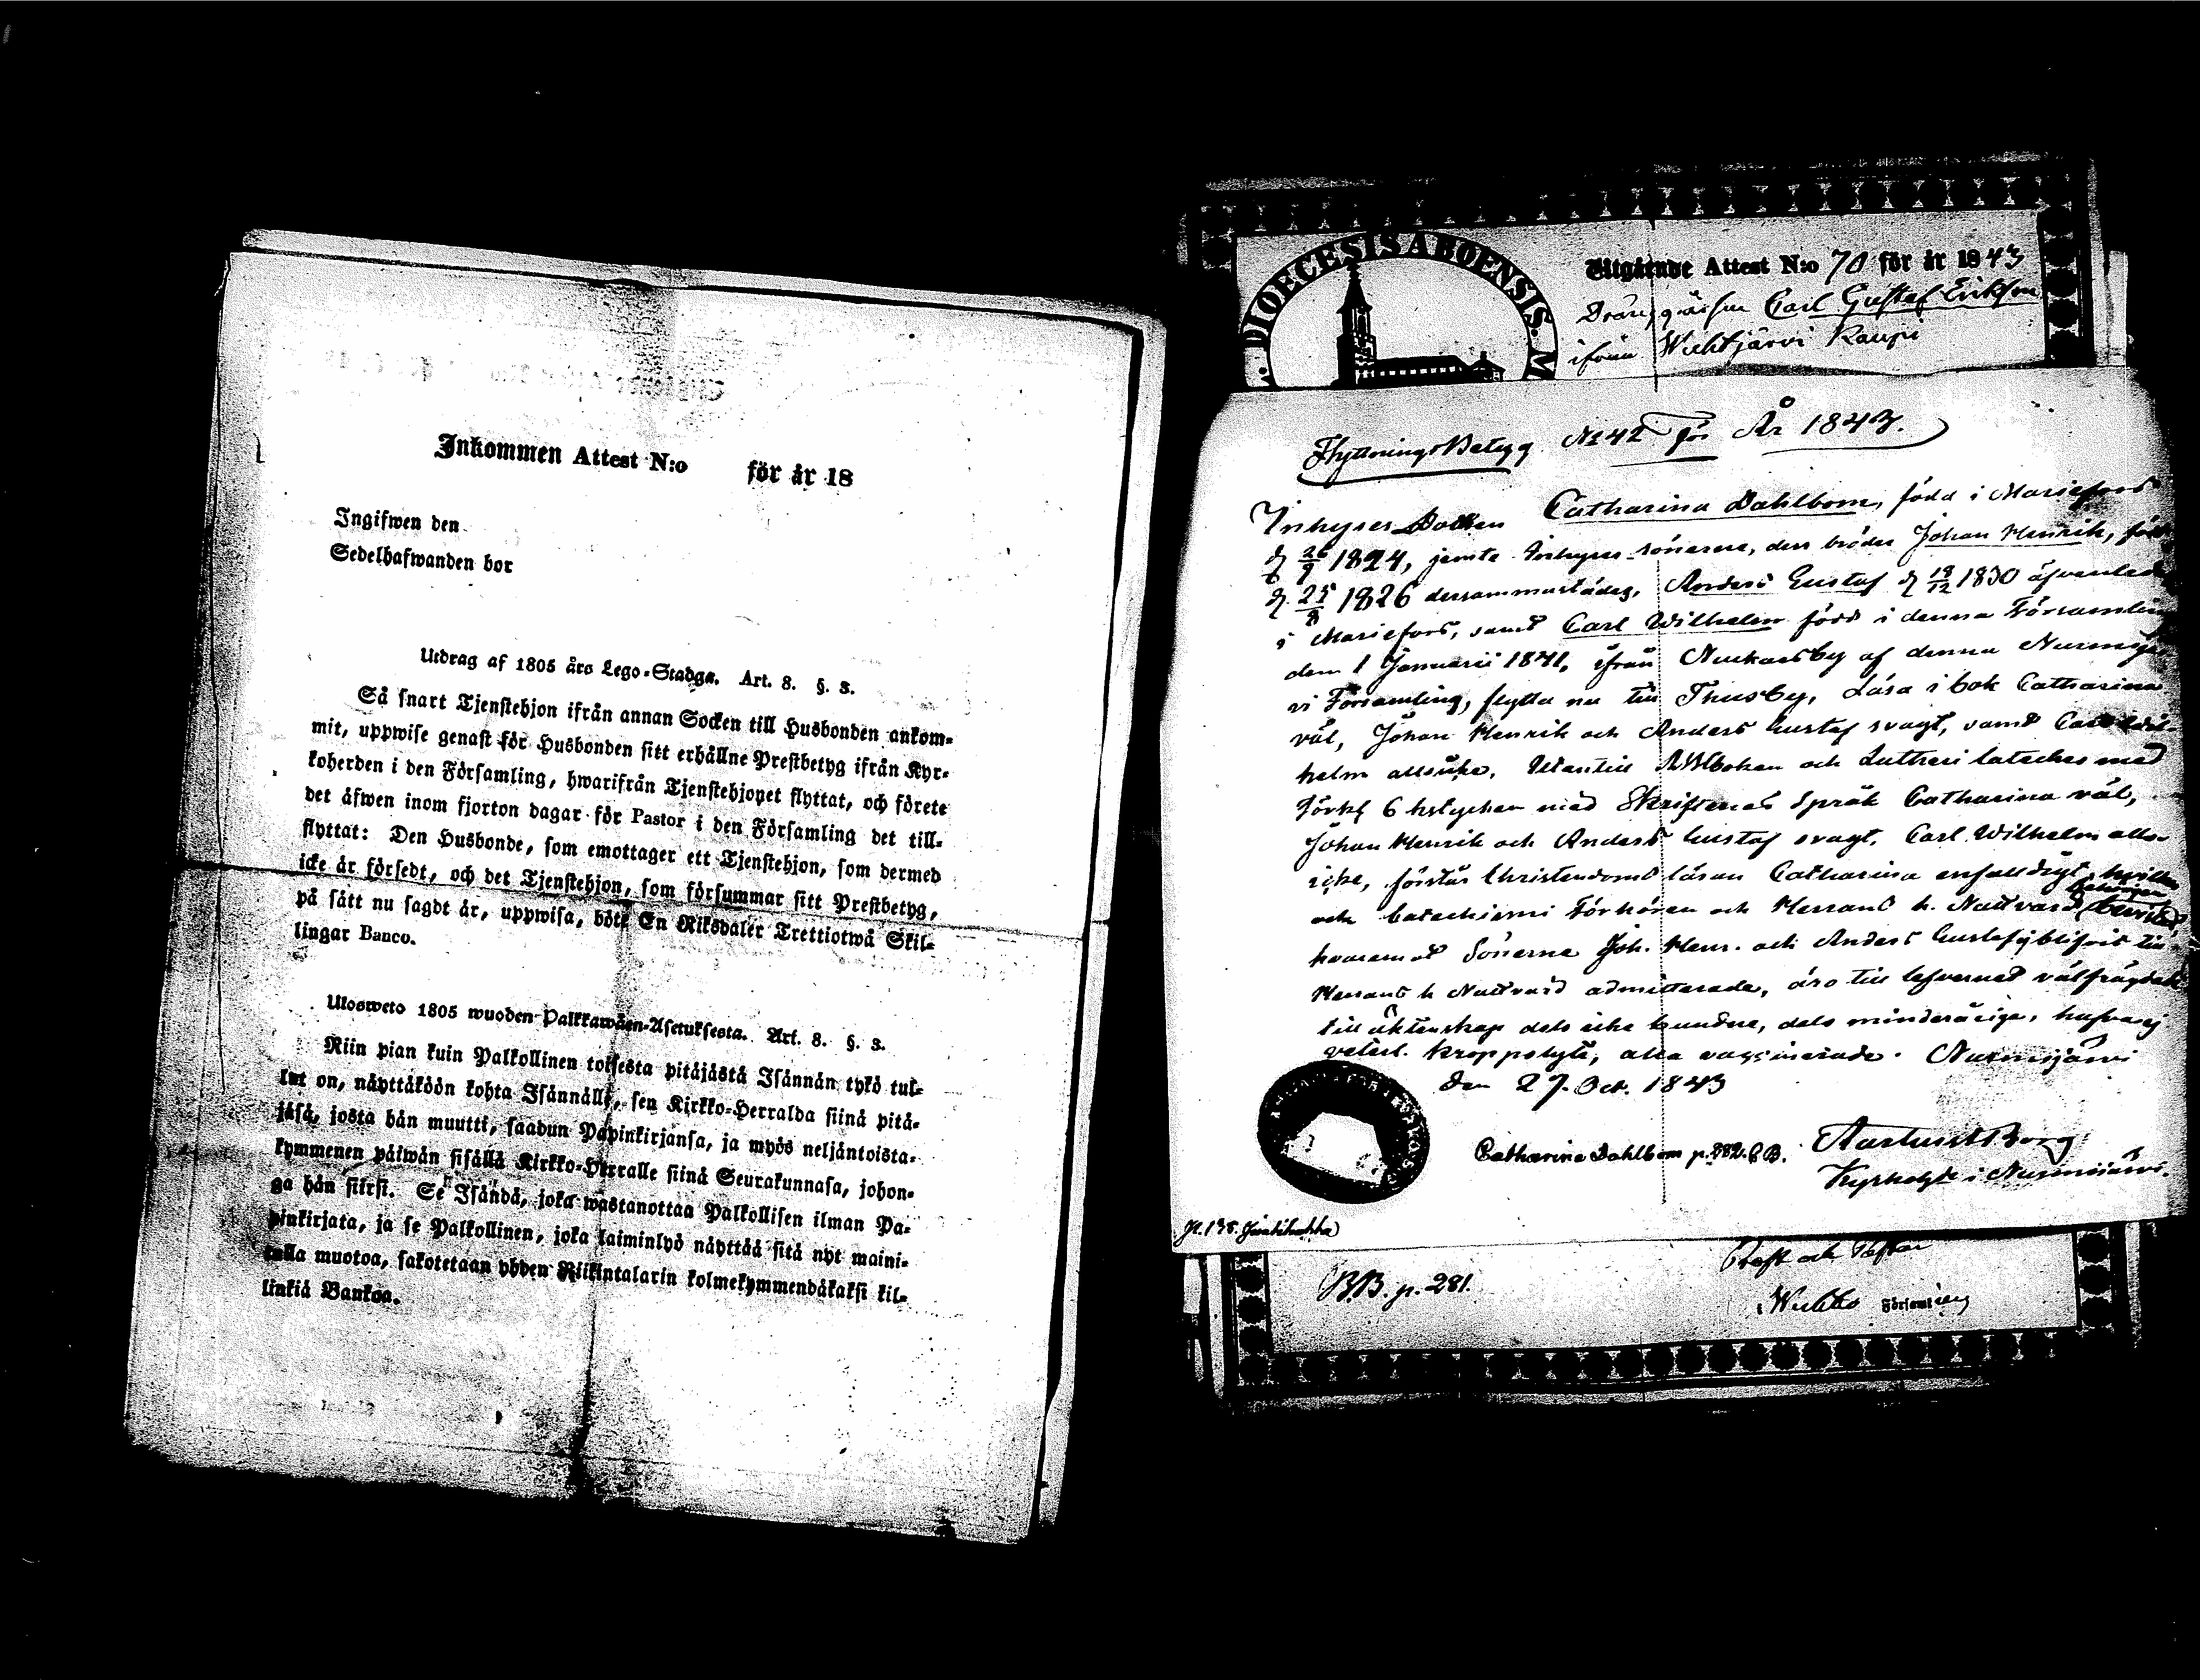 Inkommen Attest N:o för år 18
Ingifwen den
Sedelhafwanden bor
Utdrag af 1805 års Lego-Stadga. Art. 8. §. 3.
Så snart Tjenstehjon ifrån annan Socken till Husbonden ankom-
mit, uppwise genast för Husbonden sitt erhållne Prestbetyg ifrån Kyr-
koherden i den Församling, hwarifrån Tjenstehjonet flyttat, och förete
det äfwen inom fjorton dagar för Pastor i den Församling det till-
flyttat: Den Husbonde, som emottager ett Tjenstehjon, som dermed
icke är försedt, och det Tjenstehjon, som försummar sitt Prestbetyg,
på sätt nu sagdt är, uppwisa, böte En Riksdaler Trettiotwå Skil-
lingar Banco.
Ulosweto 1805 wuoden Palkkawäen-Asetuksesta. Art. 8. §. 3.
Niin pian kuin Palkollinen toisesta pitäjästä Isännän tykö tul-
lut on, näyttäköön kohta Isännälle, sen Kirkko-Herralda siinä pitä-
jäsä, josta hän muutti, saadun Papinkirjansa, ja myös neljäntoista-
kymmenen päiwän sisällä Kirkko-Herralle siinä Seurakunnasa, johon-
ga hän siirsi. Se Isändä, joka wastanottaa Palkollisen ilman Pa-
pinkirjata, ja se Palkollinen, joka laiminlyö näyttää sitä nyt maini-
tulla muotoa, sakotetaan yhden Riikintalarin kolmekymmendäkaksi kil-
linkiä Bankoa.
DIOECESIS ABOENSIS. M
Utgående Attest N:o 70 för år 1843
Dränggåssen Carl Gustaf Erikson
ifrån Wichtjärvi Kaupi
Flyttnings Betyg No 42 för År 1843.
Inhyses Catharina Dahlbom, född i Mariefors
d 26/9 1824, jemte Inhyses sönerne, dess bröder Johan Henrik, född
d 25/8 1826 dersammastädes, Anders Gustaf d 18/12 1830 äfvenledes
i Mariefors, samt Carl Wilhelm född i denna Församling
den 1 Januarii 1841, ifrån Nuckarsby af denna Nurmijär
vi Församling, flytta nu till Thusby, Läsa i bok Catharina
väl, Johan Henrik och Anders Gustaf svagt, samt Carl Wil-
helm allsicke. Utantill ABCboken och Lutheri cateches med
Förkl 6 hstycken med Skriftenes Språk Catharina väl,
Johan Henrik och Anders Gustaf svagt, Carl Wilhelm alls-
icke, förstår Christendoms läran Catharina enfaldigt, hvilken
och catechismi Förhören och Herrans h. Nattvard
hvaremot Sönerne Joh. Henr. och Anders Gustaf till
Herrans h Nattvard admitterade, äro till lefvernet välfrägdade
till äktenskap dels icke bundne, dels minderårige, hafva ej
veterl. kroppslyte, alla vaccinerade. Nurmijärvi
den 27. Oct. 1843
Catharina Dahlbom p. 882. C.B.
Kyrkoh i Nurmijärvi.
B.B. p. 281.
Prost och Pastor
Wichtis Församling